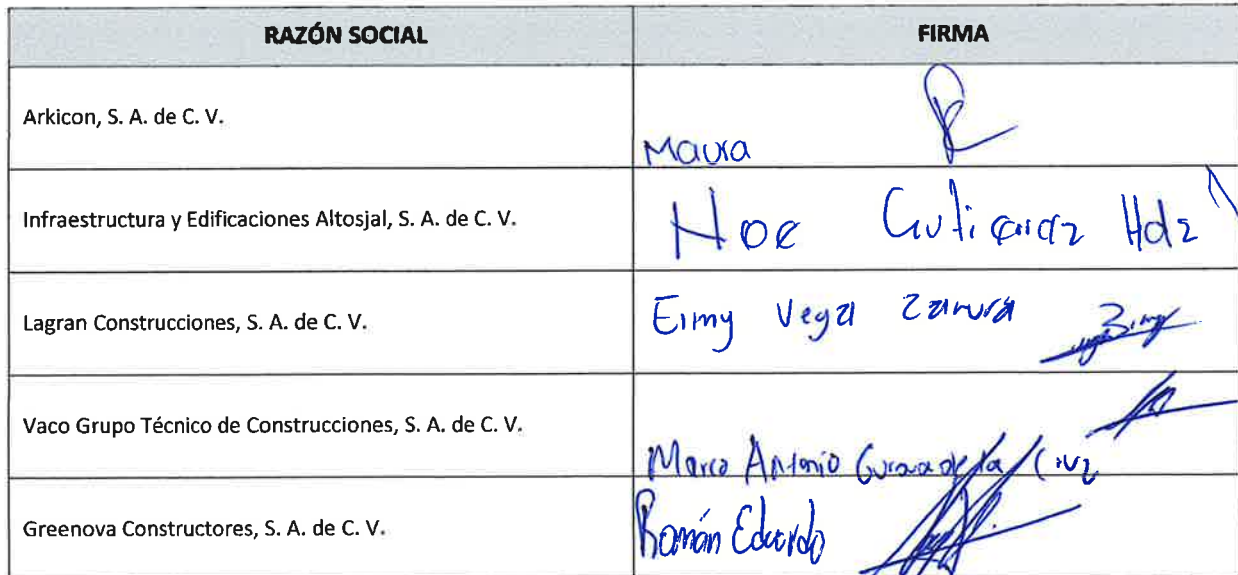 RAZÓN SOCIAL FIRMA
Arkicon, S. A. de C. V.
Maura
Infraestructura y Edificaciones Altosjal, S. A. de C. V. Noe Gutierrez Hdz
Lagran Construcciones, S. A. de C. V. Eimy Vega
Vaco Grupo Técnico de Construcciones, S. A. de C. V.
Marco Antonio
Greenova Constructores, S. A. de C. V. Román Eduardo